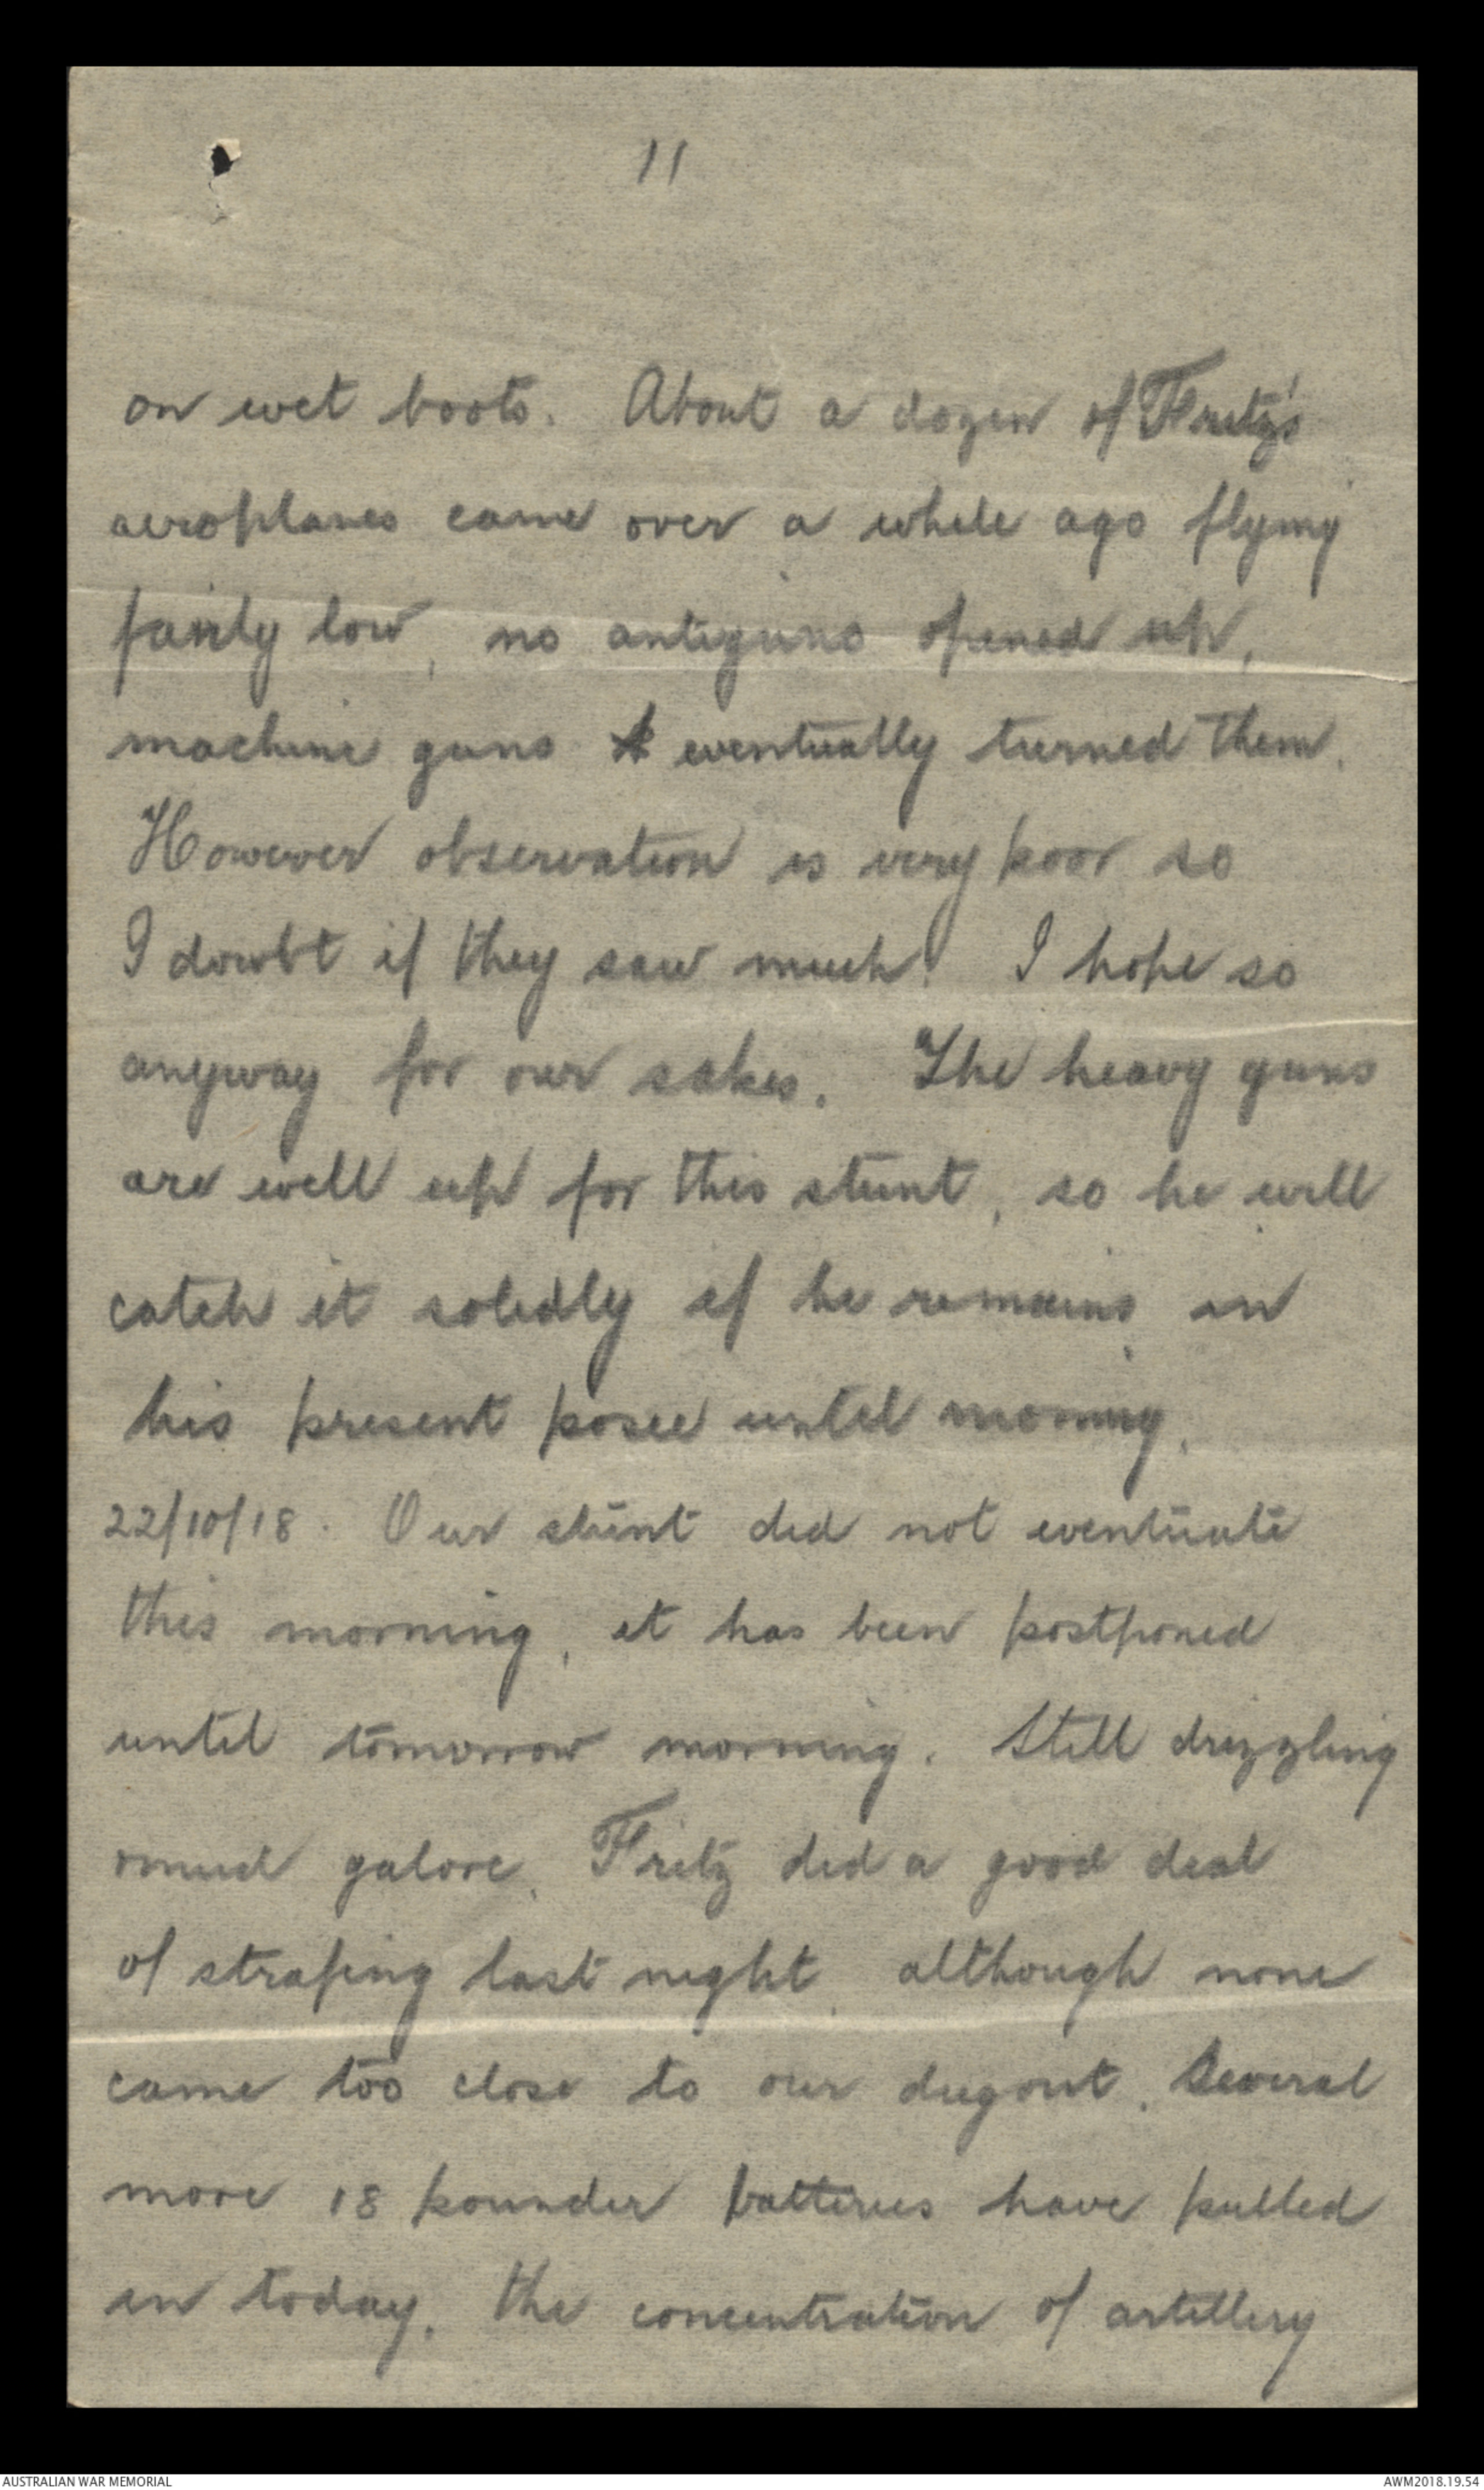 11
on wet boots. About a dozen of Fritz's
aeroplanes came over a while ago flying
fairly low, no antiguns opened up,
machine guns eventually turned them.
However observation is very poor so
I doubt if they saw much. I hope so
anyway for our sakes. The heavy guns
are well up for this stunt, so he will
catch it solidly if he remains in
his present posee until morning.
22/10/18. Our stunt did not eventuate
this morning, it has been postponed
until tomorrow morning. Still drizzling
mud galore. Fritz did a good deal
of strafing last night, although none
came too close to our dugout. Several
more 18 pounder batteries have pulled
in today. The concentration of artillery
AUSTRALIAN WAR MEMORIAL
AWM2018.19.54